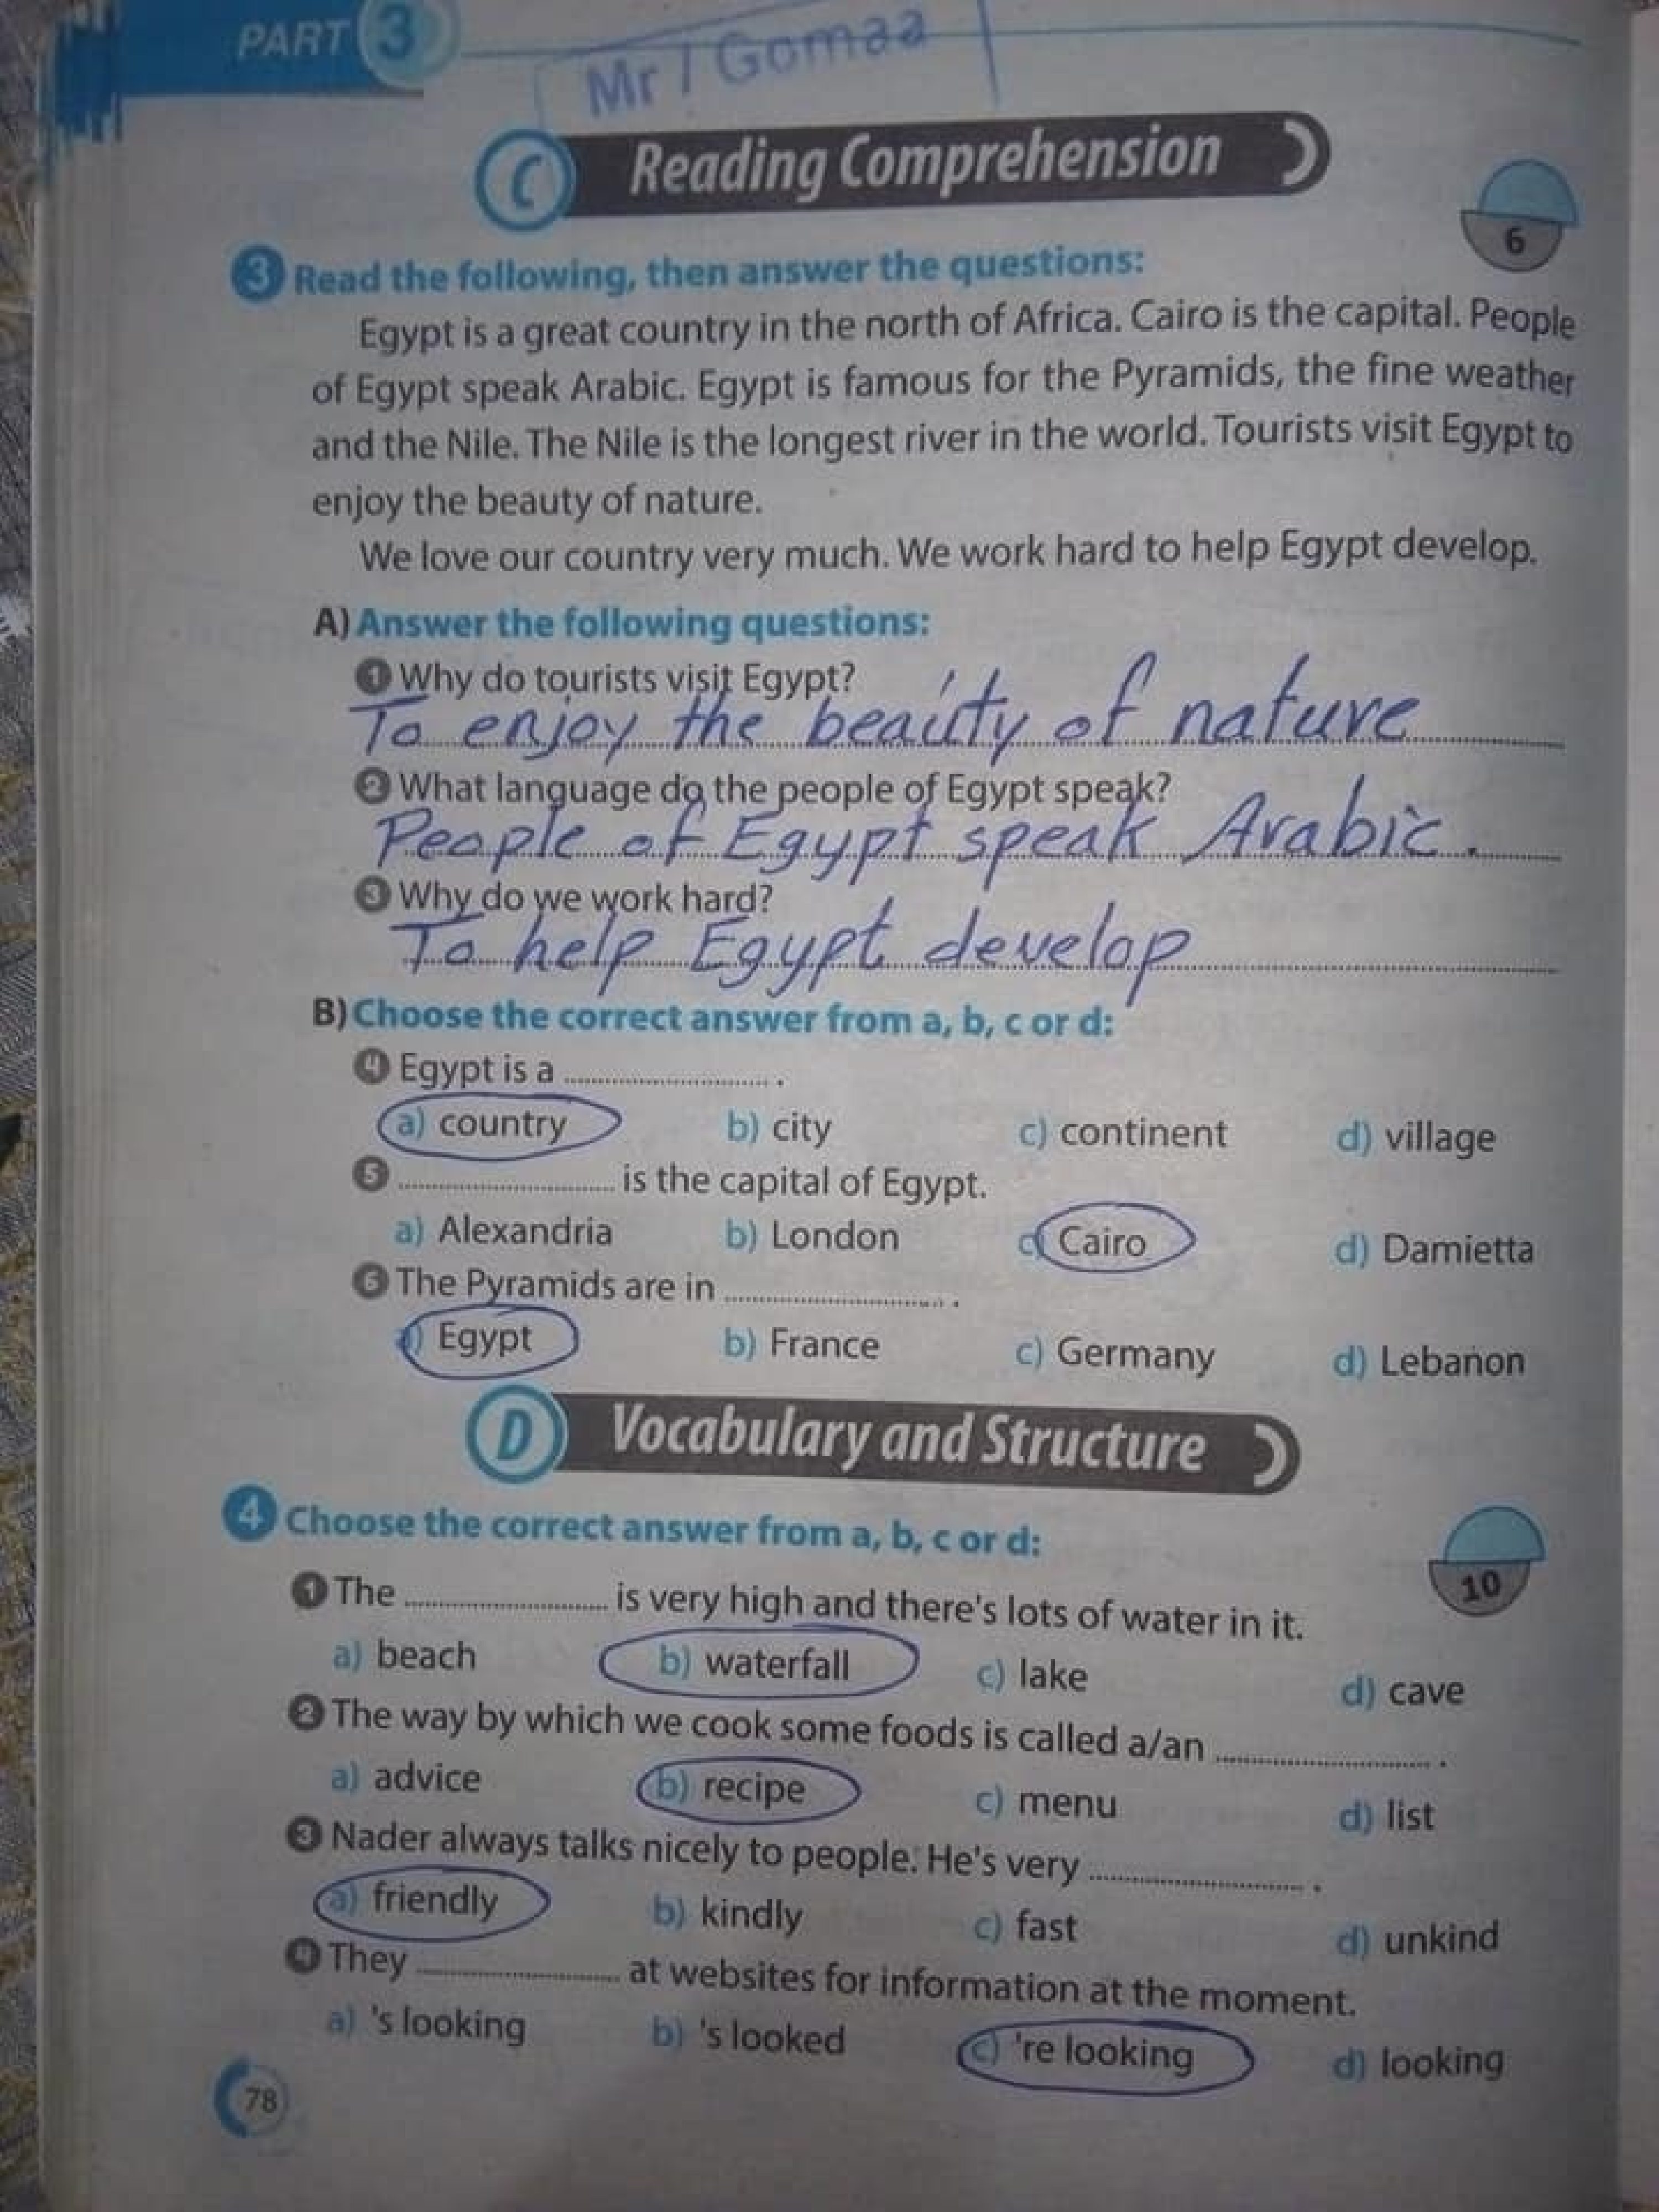 PART 3
Mr / Gomaa
C Reading Comprehension
6
3 Read the following, then answer the questions:
Egypt is a great country in the north of Africa. Cairo is the capital. People
of Egypt speak Arabic. Egypt is famous for the Pyramids, the fine weather
and the Nile. The Nile is the longest river in the world. Tourists visit Egypt to
enjoy the beauty of nature.
We love our country very much. We work hard to help Egypt develop.
A) Answer the following questions:
1 Why do tourists visit Egypt?
To enjoy the beauty of nature
2 What language do the people of Egypt speak?
People of Egypt speak Arabic.
3 Why do we work hard?
To help Egypt develop
B) Choose the correct answer from a, b, c or d:
4 Egypt is a .............................. .
a) country b) city c) continent d) village
5 .............................. is the capital of Egypt.
a) Alexandria b) London c) Cairo d) Damietta
6 The Pyramids are in .............................. .
a) Egypt b) France c) Germany d) Lebanon
D Vocabulary and Structure
4 Choose the correct answer from a, b, c or d:
10
1 The .............................. is very high and there's lots of water in it.
a) beach b) waterfall c) lake d) cave
2 The way by which we cook some foods is called a/an .............................. .
a) advice b) recipe c) menu d) list
3 Nader always talks nicely to people. He's very .............................. .
a) friendly b) kindly c) fast d) unkind
4 They .............................. at websites for information at the moment.
a) 's looking b) 's looked c) 're looking d) looking
78